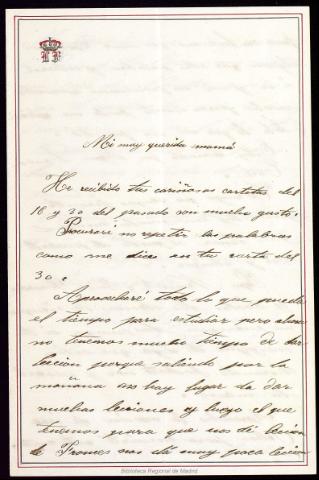 Mi muy querida mamá
He recibido tus cariñosas cartitas del
18 y 30 del pasado con mucho gusto.
Procuraré no repetir las palabras
como me dices en tu carta del
30.
Aprovecharé todo lo que pueda
el tiempo para estudiar pero ahora
no tenemos mucho tiempo de dar
leccion porque saliendo por la
mañana no hay lugar de dar
muchas lecciones y luego el que
tenemos para que nos dé leccion
de Frances nos dá muy poca leccion
Biblioteca Regional de Madrid